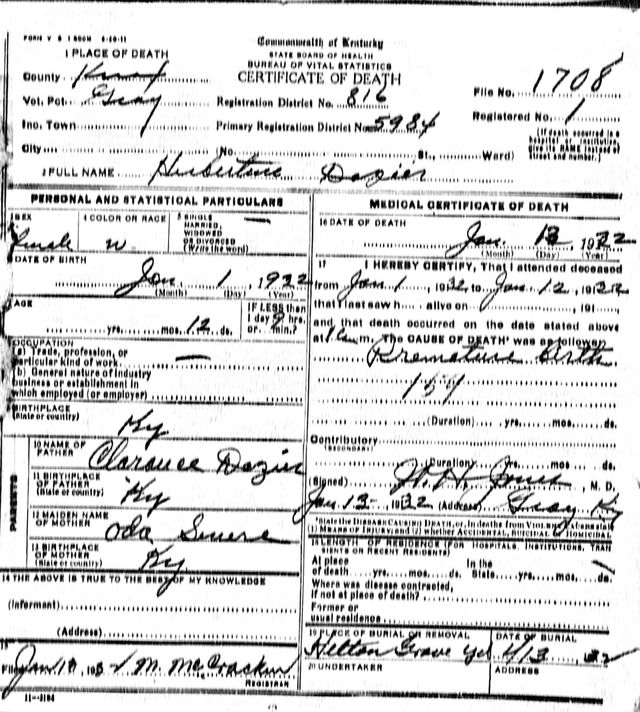 FORM V S 1 500M 6-20-11
Commonwealth of Kentucky
STATE BOARD OF HEALTH
BUREAU OF VITAL STATISTICS
CERTIFICATE OF DEATH
1 PLACE OF DEATH
County Knox
Vot. Pct. Gray
Registration District No. 816
File No. 1708
Inc. Town
Primary Registration District No. 5984
Registered No. 1
City (No. St., Ward)
(If death occurred in a hospital or institution, give its NAME instead of street and number.)
2 FULL NAME Dozier
PERSONAL AND STATISTICAL PARTICULARS
3 SEX
4 COLOR OR RACE
5 SINGLE, MARRIED, WIDOWED OR DIVORCED (Write the word)
W
DATE OF BIRTH
Jan 1 1932
(Month) (Day) (Year)
AGE
yrs. mos. 12 ds.
IF LESS than 1 day hrs. or min.?
OCCUPATION
(a) Trade, profession, or particular kind of work
(b) General nature of industry business or establishment in which employed (or employer)
BIRTHPLACE
(State or country) Ky
PARENTS
10 NAME OF FATHER Clarence Dozier
11 BIRTHPLACE OF FATHER (State or country) Ky
12 MAIDEN NAME OF MOTHER Oda
13 BIRTHPLACE OF MOTHER (State or country) Ky
14 THE ABOVE IS TRUE TO THE BEST OF MY KNOWLEDGE
(Informant)
(Address)
15
Filed Jan 1932 M. McCracken
REGISTRAR
11-3184
MEDICAL CERTIFICATE OF DEATH
16 DATE OF DEATH
Jan. 13 1932
(Month) (Day) (Year)
17 I HEREBY CERTIFY, That I attended deceased
from Jan 1, 1932, to Jan. 12, 1932
that I last saw h alive on , 191
and that death occurred on the date stated above
at m. The CAUSE OF DEATH* was as follows:
Premature Birth
159
(Duration) yrs. mos. ds.
Contributory
(SECONDARY)
(Duration) yrs. mos. ds.
(Signed) Jones, M. D.
Jan 13 1932 (Address) Gray Ky
*State the DISEASE CAUSING DEATH, or, in deaths from VIOLENT CAUSES, state (1) MEANS OF INJURY and (2) whether ACCIDENTAL, SUICIDAL or HOMICIDAL.
18 LENGTH OF RESIDENCE (FOR HOSPITALS, INSTITUTIONS, TRANSIENTS OR RECENT RESIDENTS)
At place of death yrs. mos. ds. In the State yrs. mos. ds.
Where was disease contracted, if not at place of death?
Former or usual residence
19 PLACE OF BURIAL OR REMOVAL
DATE OF BURIAL
Grove 1/13, 32
20 UNDERTAKER
ADDRESS